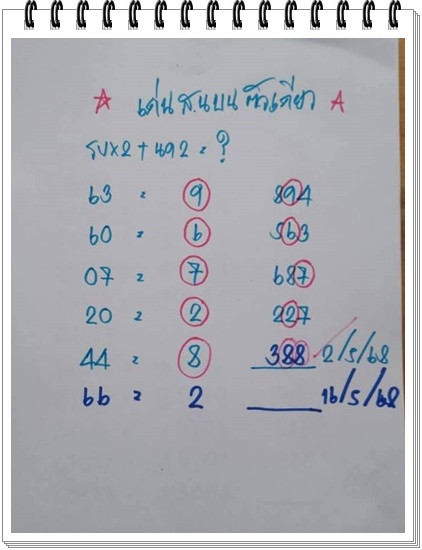 ☆ เด่น ส.น บน ตัวเดียว ☆
รบ×2 + 2 = ?
63 = 9 894
60 = 6 563
07 = 7 687
20 = 2 227
44 = 8 388 2/5/68
66 = 2 16/5/68